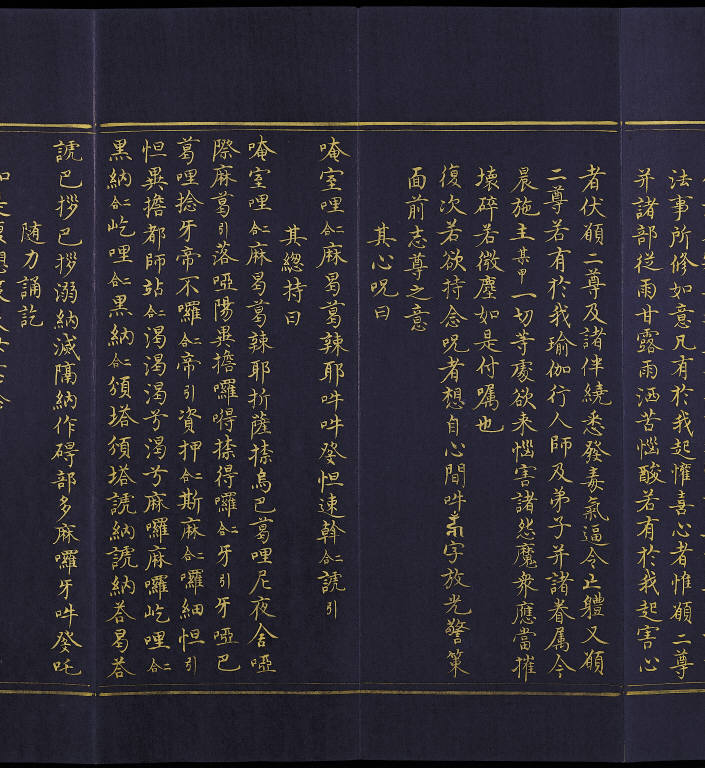 法事所修如意凡有於我起懽喜心者惟願二尊
并諸部從雨甘露雨洒苦惱酸若有於我起害心
者伏願二尊及諸伴繞悉發毒氣逼令止軆又願
二尊若有於我瑜伽行人師及弟子并諸眷属今
晨施主其甲一切等處欲来惱害諸怨魔衆應當摧
壊碎若微塵如是付嘱也
復次若欲持念呪者想自心間吽字放光警策
面前志尊之意
其心呪曰
唵室哩二合麻曷葛辣耶吽吽癹怛速幹二合諕引
其緫持曰
唵室哩二合麻曷葛辣耶折薩搽烏巴葛哩尼夜舍啞
際麻葛引落啞陽異擔囉嘚搽得囉二合牙引牙啞巴
葛哩捻牙帝不囉二合帝引資押二合斯麻二合囉細怛引
怛異擔都師站二合渴渴渴兮渴兮麻囉麻囉屹哩二合
黒納二合屹哩二合黒納二合頒塔頒塔諕納諕納荅曷荅
諕巴拶巴拶溺納滅隔納作碍部多麻囉牙吽癹吒
随力誦訖